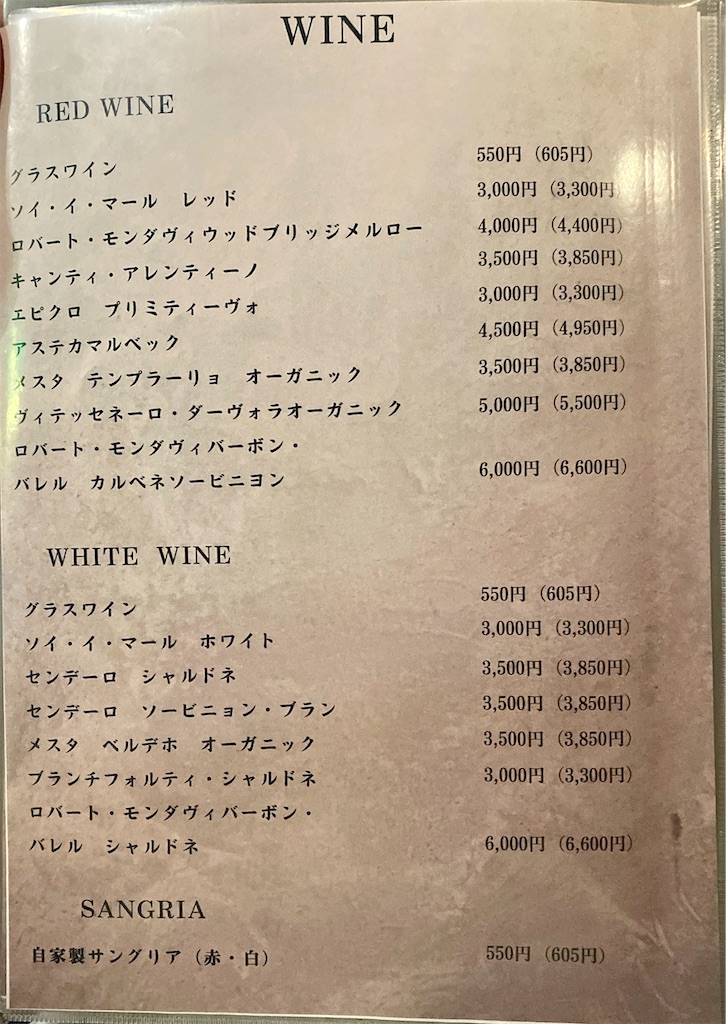 WINE
RED WINE
グラスワイン 550円（605円）
ソイ・イ・マール レッド 3,000円（3,300円）
ロバート・モンダヴィウッドブリッジメルロー 4,000円（4,400円）
キャンティ・アレンティーノ 3,500円（3,850円）
エピクロ プリミティーヴォ 3,000円（3,300円）
アステカマルベック 4,500円（4,950円）
メスタ テンプラーリョ オーガニック 3,500円（3,850円）
ヴィテッセネーロ・ダーヴォラオーガニック 5,000円（5,500円）
ロバート・モンダヴィバーボン・
バレル カルベネソービニヨン 6,000円（6,600円）
WHITE WINE
グラスワイン 550円（605円）
ソイ・イ・マール ホワイト 3,000円（3,300円）
センデーロ シャルドネ 3,500円（3,850円）
センデーロ ソービニョン・ブラン 3,500円（3,850円）
メスタ ベルデホ オーガニック 3,500円（3,850円）
ブランチフォルティ・シャルドネ 3,000円（3,300円）
ロバート・モンダヴィバーボン・
バレル シャルドネ 6,000円（6,600円）
SANGRIA
自家製サングリア（赤・白） 550円（605円）